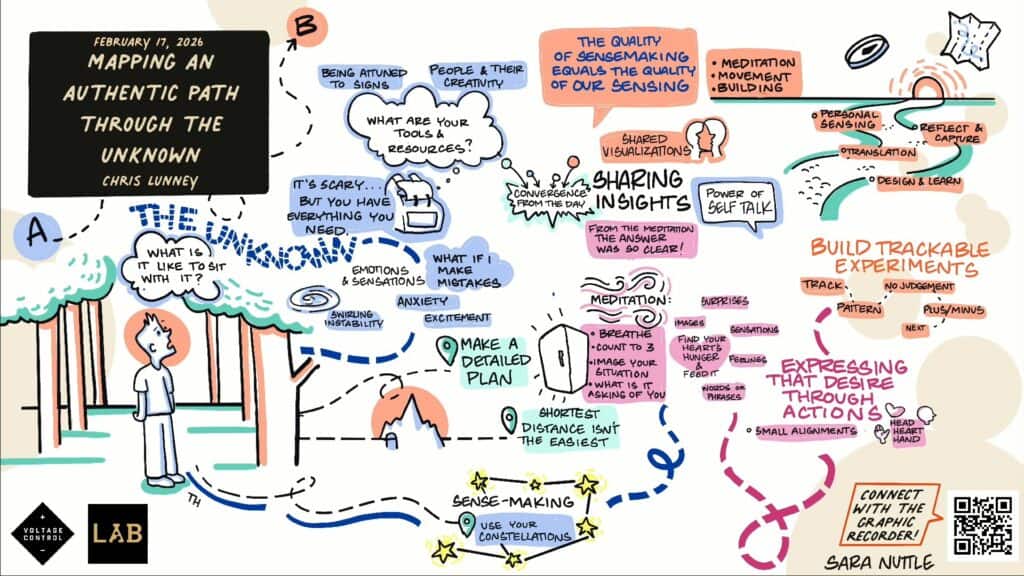 FEBRUARY 17, 2026
MAPPING AN
AUTHENTIC PATH
THROUGH THE
UNKNOWN
CHRIS LUNNEY
B
A
THE UNKNOWN
WHAT IS
IT LIKE TO SIT
WITH IT?
BEING ATTUNED
TO SIGNS
PEOPLE & THEIR
CREATIVITY
WHAT ARE YOUR
TOOLS &
RESOURCES?
IT'S SCARY...
BUT YOU HAVE
EVERYTHING YOU
NEED.
EMOTIONS
& SENSATIONS
WHAT IF I
MAKE
MISTAKES
SWIRLING
INSTABILITY
ANXIETY
EXCITEMENT
MAKE A
DETAILED
PLAN
SHORTEST
DISTANCE ISN'T
THE EASIEST
SENSE-MAKING
USE YOUR
CONSTELLATIONS
THE QUALITY
OF SENSEMAKING
EQUALS THE QUALITY
OF OUR SENSING
SHARED
VISUALIZATIONS
CONVERGENCE
FROM THE DAY
SHARING
INSIGHTS
POWER OF
SELF TALK
FROM THE MEDITATION
THE ANSWER
WAS SO CLEAR!
MEDITATION:
• BREATHE
• COUNT TO 3
• IMAGE YOUR
SITUATION
• WHAT IS IT
ASKING OF YOU
SURPRISES
IMAGES
SENSATIONS
FIND YOUR
HEART'S
HUNGER
& FEED IT
FEELINGS
WORDS OR
PHRASES
• MEDITATION
• MOVEMENT
• BUILDING
PERSONAL
SENSING
REFLECT &
CAPTURE
TRANSLATION
DESIGN & LEARN
BUILD TRACKABLE
EXPERIMENTS
TRACK
NO JUDGEMENT
PATTERN
PLUS/MINUS
NEXT
EXPRESSING
THAT DESIRE
THROUGH
ACTIONS
SMALL ALIGNMENTS
HEAD
HEART
HAND
CONNECT
WITH THE
GRAPHIC
RECORDER!
SARA NUTTLE
VOLTAGE
CONTROL
LAB